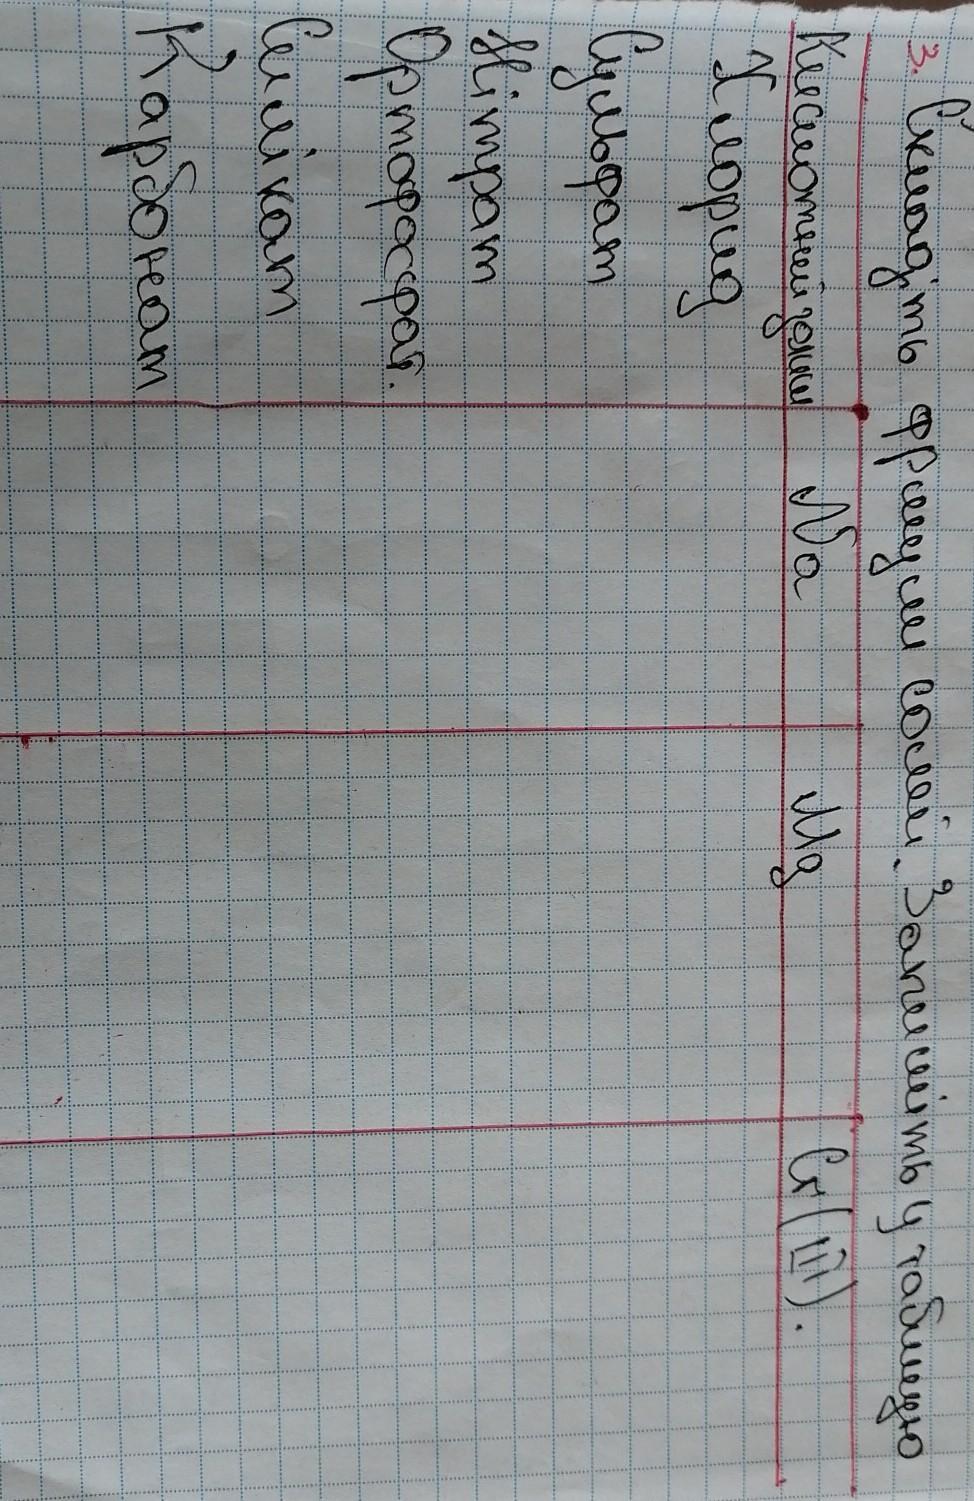 3. Складіть формули солей. Запишіть у таблицю
Кислотний залиш Na Mg Cr(III).
Хлорид
Сульфат
Нітрат
Ортофосфат.
Силікат
Карбонат